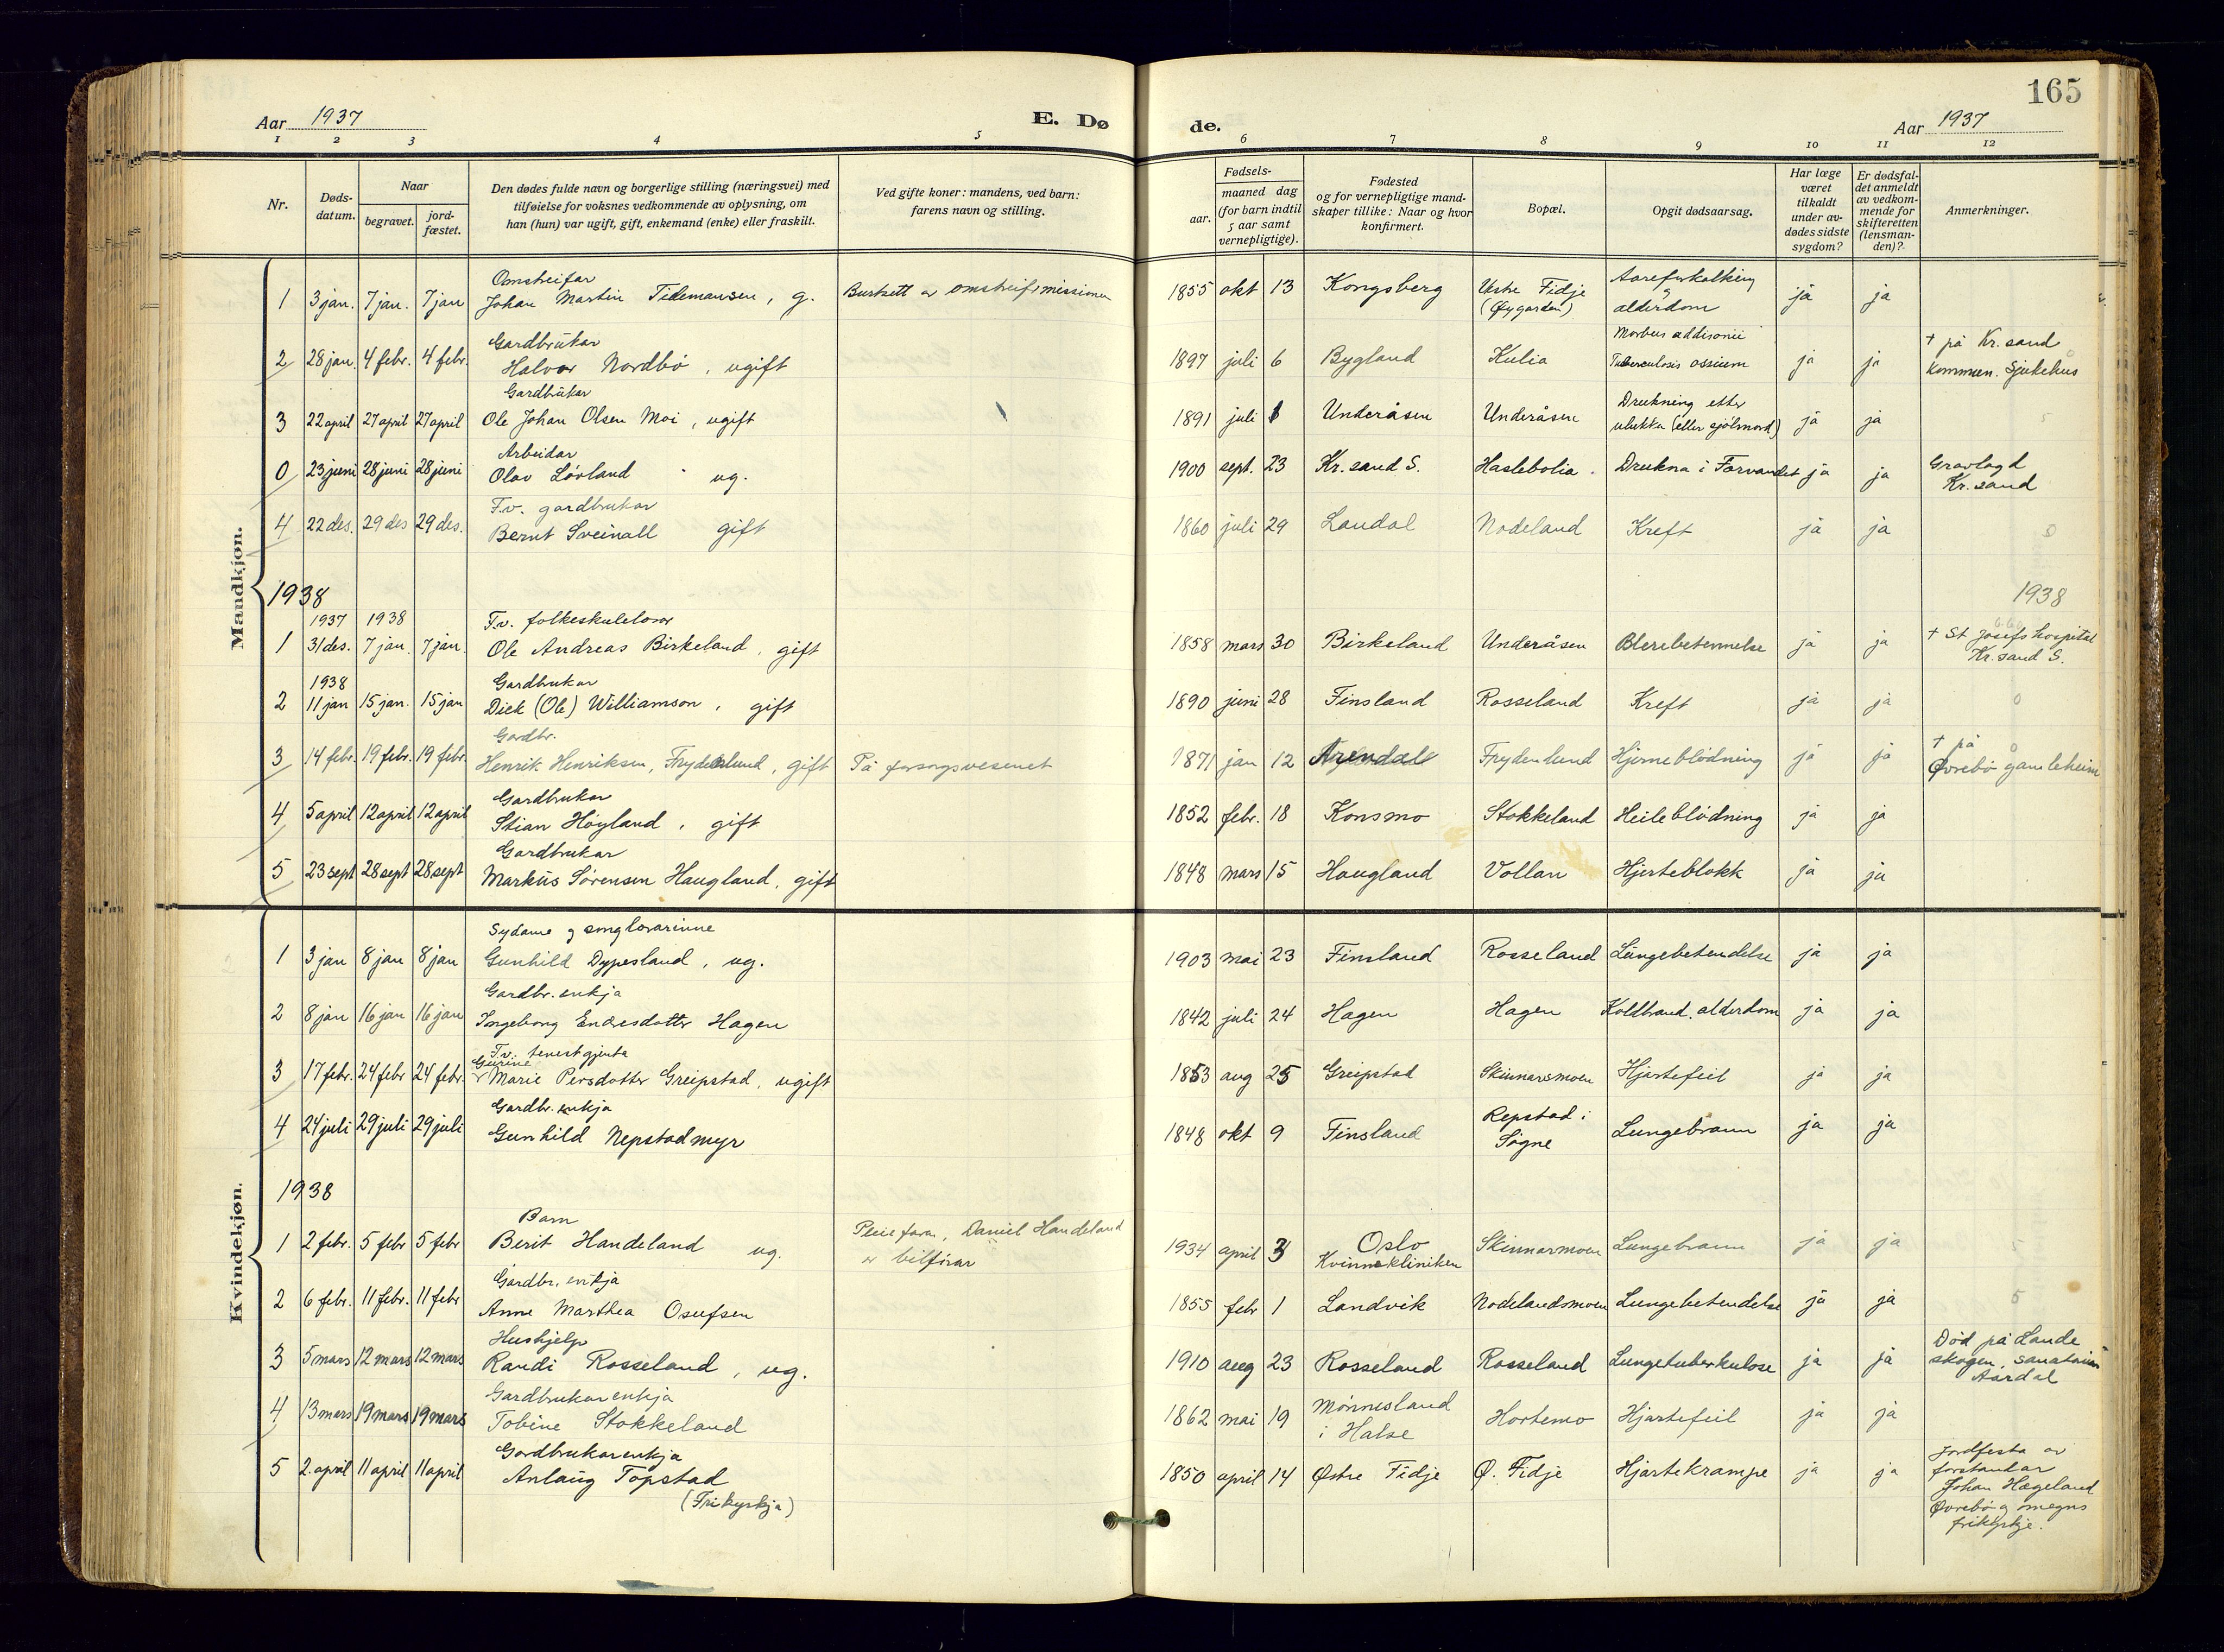 165
Aar 1937
E. Dø
de.
Aar 1937
1 2 3 4 5 6 7 8 9 10 11 12
Nr.
Døds-
datum.
Naar
begravet.
jord-
fæstet.
Den dødes fulde navn og borgerlige stilling (næringsvei) med
tilføielse for voksnes vedkommende av oplysning, om
han (hun) var ugift, gift, enkemand (enke) eller fraskilt.
Ved gifte koner: mandens, ved barn:
farens navn og stilling.
Fødsels-
aar.
maaned dag
(for barn indtil
5 aar samt
vernepligtige).
Fødested
og for vernepligtige mand-
skaper tillike: Naar og hvor
konfirmert.
Bopæl.
Opgit dødsaarsag.
Har læge
været
tilkaldt
under av-
dødes sidste
sygdom?
Er dødsfal-
det anmeldt
av vedkom-
mende for
skifteretten
(lensman-
den)?
Anmerkninger.
Mandkjøn.
Omstreifar
1 3 jan. 7 jan. 7 jan Johan Martin Tidemansen, g. Burtsett av omstreifsmissionen 1855 okt 13 Kongsberg Vestre Fidje (Øygarden) Aareforkalking og alderdom ja ja
Gardbrukar
2 28 jan. 4 febr. 4 febr. Halvor Nordbö, ugift 1897 juli 6 Bygland Kulia Morbus addisonii Tuberculosis ossium ja ja † på Kr.sand kommun. Sjukehus
Gardbrukar
3 22 april 27 april 27 april Ole Johan Olsen Moi, ugift 1891 juli Underåsen Underåsen Drukning etter ulukka (eller sjölmord) ja ja
Arbeidar
0 23 juni 28 juni 28 juni Olav Lövland ug. 1900 sept. 23 Kr.sand S. Haslebolia Drukna i Torvandet ja ja Gravlagd Kr.sand
F.v. gardbrukar
4 22 des. 29 des 29 des. Bernt Sveinall gift 1860 juli 29 Laudal Nodeland Kreft ja ja
1938
1938
1937 1938 F.v. folkeskulelærar
1 31 des. 7 jan. 7 jan. Ole Andreas Birkeland, gift 1858 mars 30 Birkeland Underåsen Blerebetennelse ja ja † St Josefs hospital Kr.sand S.
1938 Gardbrukar
2 11 jan 15 jan. 15 jan Dick (Ole) Williamson, gift 1890 juni 28 Finsland Rosseland Kreft ja ja 0
Gardbr.
3 14 febr. 19 febr. 19 febr. Henrik Henriksen, Frydenlund, gift På forsorgsvesenet 1871 jan 12 Arendal Frydenlund Hjerneblödning ja ja † på Øvrebö gamleheim
Gardbrukar
4 5 april 12 april 12 april Stian Höyland, gift 1852 febr. 18 Konsmo Stokkeland Heileblödning ja ja
Gardbrukar
5 23 sept 28 sept 28 sept Markus Sörensen Haugland, gift 1848 mars 15 Haugland Vollan Hjerteblokk ja ja
Kvindekjøn.
Sydame og songlærarinne
1 3 jan 8 jan 8 jan Gunhild Dypesland, ug. 1903 mai 23 Finsland Rosseland Lungebetendelse ja ja
Gardbr. enkja
2 8 jan 16 jan 16 jan Ingeborg Endresdotter Hagen 1842 juli 24 Hagen Hagen Koldbrand, alderdom ja ja
F.v. tenestgjenta
Gurine
3 17 febr. 24 febr 24 febr. Marie Persdotter Greipstad, ugift 1853 aug 25 Greipstad Skinnarsmoen Hjartefeil ja ja
Gardbr. enkja
4 24 juli 29 juli 29 juli Gunhild Nepstadmyr 1848 okt 9 Finsland Repstad i Sögne Lungebrann ja ja
1938
Barn
1 2 febr. 5 febr 5 febr Berit Handeland ug. Pleiefaren, Daniel Handeland er bilförar 1934 april 3 Oslo Kvinnekliniken Skinnarmoen Lungebrann ja ja
Gardbr. enkja
2 6 febr. 11 febr. 11 febr Anne Marthea Osufsen 1855 febr 1 Landvik Nodelandsmoen Lungebetendelse ja ja
Hushjelp
3 5 mars 12 mars 12 mars Randi Rosseland, ug. 1910 aug 23 Rosseland Rosseland Lungetuberkulose ja ja Död på Lande skogen, sanatorium Aardal
Gardbrukarenkja
4 13 mars 19 mars 19 mars Tobine Stokkeland 1862 mai 19 Mönnesland i Halse Hortemo Hjartefeil ja ja
Gardbrukarenkja
5 2. april 11 april 11 april Anlaug Topstad (Frikyrkja) 1850 april 14 Østre Fidje Ø. Fidje Hjartekrampe ja ja Jordfesta av forstandar Johan Hægeland Øvrebö og omegns frikyrkje.